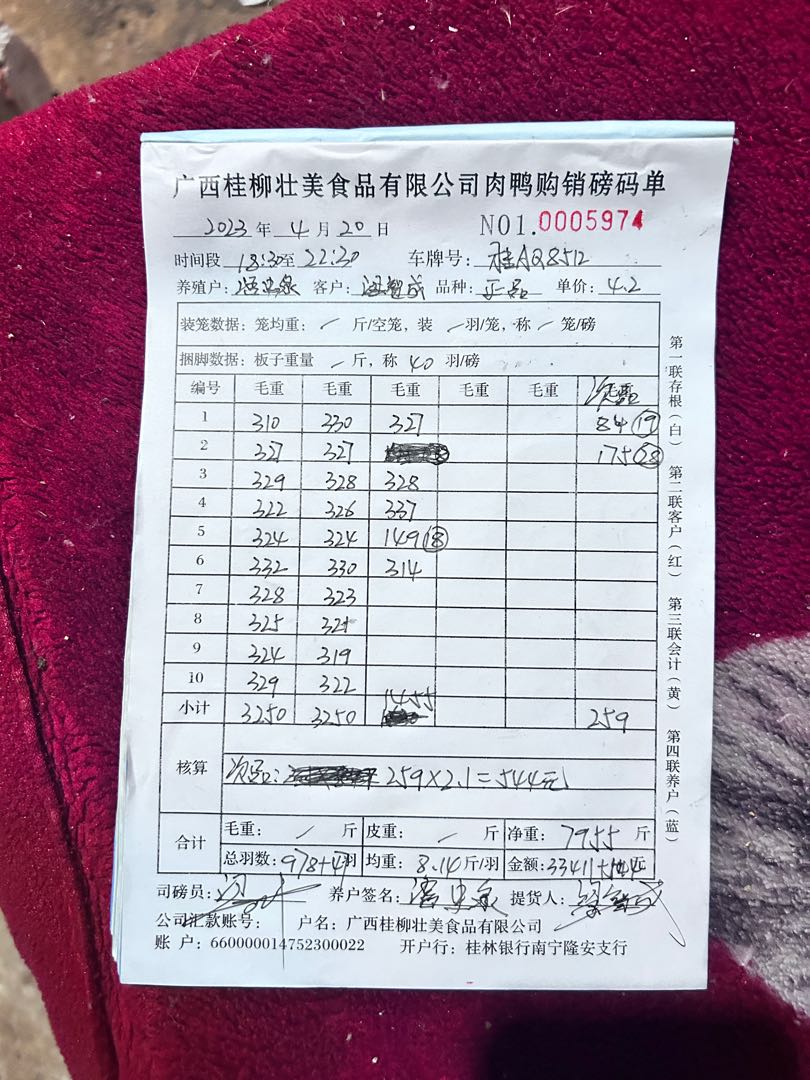 广西桂柳壮美食品有限公司肉鸭购销磅码单
2023 年 4 月 20 日 NO1.0005974
时间段 18:30至 22:30 车牌号: 桂AQ8512
养殖户: 客户: 品种: 正品 单价: 4.2
装笼数据: 笼均重: / 斤/空笼, 装 / 羽/笼, 称 / 笼/磅
捆脚数据: 板子重量 / 斤, 称 40 羽/磅
编号 毛重 毛重 毛重 毛重 毛重 次品
1 310 330 327 84 19
2 327 327 175 28
3 329 328 328
4 322 326 337
5 324 324 149 18
6 332 330 314
7 328 323
8 325 321
9 324 319
10 329 322
小计 3250 3250 1455 259
核算 次品: 259×2.1=544元
合计 毛重: / 斤 皮重: / 斤 净重: 7955 斤
总羽数: 978+47羽 均重: 8.14斤/羽 金额: 33411+544元
司磅员: 养户签名: 提货人:
公司汇款账号: 户名: 广西桂柳壮美食品有限公司
账 户: 660000014752300022 开户行: 桂林银行南宁隆安支行
第一联存根(白) 第二联客户(红) 第三联会计(黄) 第四联养户(蓝)